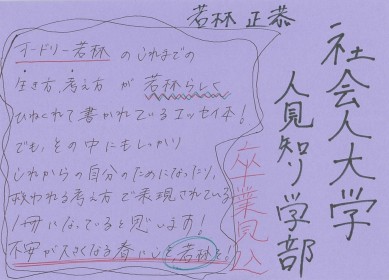 若林 正恭
社会人大学
人見知り学部
卒業見込
オードリー若林のこれまでの
生き方、考え方が若林らしく
ひねくれて書かれているエッセイ本!
でも、その中にもしっかり
これからの自分のためになったり、
救われる考え方で表現されている
1冊になっていると思います!
不安が大きくなる春にこそ、若林を!